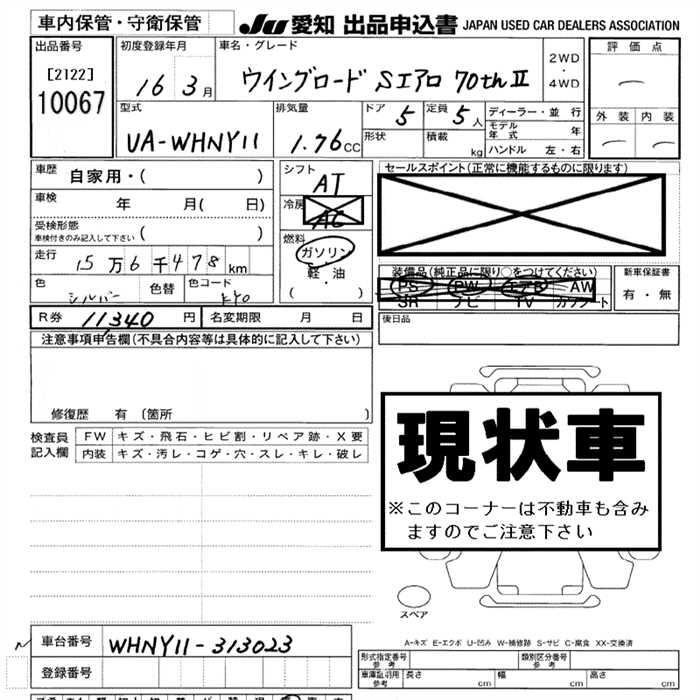 車内保管・守衛保管
JU 愛知 出品申込書 JAPAN USED CAR DEALERS ASSOCIATION
出品番号
[2122]
10067
初度登録年月
16 3月
車名・グレード
ウイングロード Sエアロ 70th II
2WD
・
4WD
評価点
外装 内装
型式
UA-WHNY11
排気量
1.76cc
ドア 5
定員 5人
形状
積載 kg
ディーラー・並行
モデル年式 年
ハンドル 左・右
車歴
自家用・( )
車検
年 月( 日)
受検形態
車検付きのみ記入して下さい ( )
走行
15万6千478km
色
シルバー
色替
色コード
KY0
シフト
AT
冷房
AC
燃料
ガソリン
・
軽・油
( )
セールスポイント(正常に機能するものに限ります)
装備品(純正品に限り○をつけてください)
PS PW エアB AW
SR ナビ TV カワシート
新車保証書
有・無
R券 11,340円
名変期限 月 日
後日品
注意事項申告欄(不具合内容等は具体的に記入して下さい)
修復歴 有 〔箇所 〕
検査員
記入欄
FW キズ・飛石・ヒビ割・リペア跡・X要
内装 キズ・汚レ・コゲ・穴・スレ・キレ・破レ
現状車
※このコーナーは不動車も含み
ますのでご注意下さい
スペア
A-キズ E-エクボ U-凹み W-補修跡 S-サビ C-腐食 XX-交換済
車台番号
WHNY11-313023
登録番号
形式指定番号
参考
類別区分番号
参考
車庫証明用
参考
長さ cm
幅 cm
高さ cm